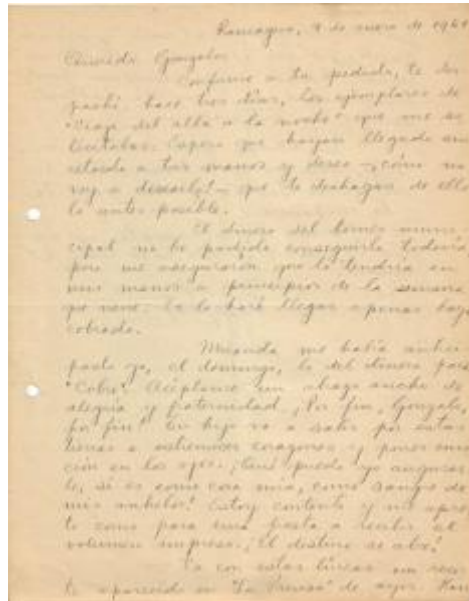 Rancagua, 4 de enero de 1961
Querido Gonzalo:
Conforme a tu pedido, te des-
paché, hace tres días, los ejemplares de
"Viaje del alba a la noche" que me so-
licitabas. Espero que hayan llegado sin
retardo a tus manos y deseo —¡cómo no
voy a desearlo!— que te deshagas de ellos
lo antes posible.
El dinero del torneo muni-
cipal no he podido conseguirlo todavía,
pero me aseguraron que lo tendría en
mis manos a principios de la semana
que viene. Te lo haré llegar apenas haya
cobrado.
Miranda me había antici-
pado ya, el domingo, lo del dinero para
"Cobre". Acéptame un abrazo ancho de
alegría y fraternidad. ¡Por fin, Gonzalo,
por fin! Tu hijo va a salir por estas
tierras a estremecer corazones y poner emo-
ción en los ojos. ¡Qué puedo yo augurar-
le, si es como cosa mía, como sangre de
mis anhelos! Estoy contento y me apres-
to como para una fiesta a recibir el
volumen impreso. ¡El destino se abre!
Va con estas líneas un recor-
te aparecido en "La Prensa" de ayer.